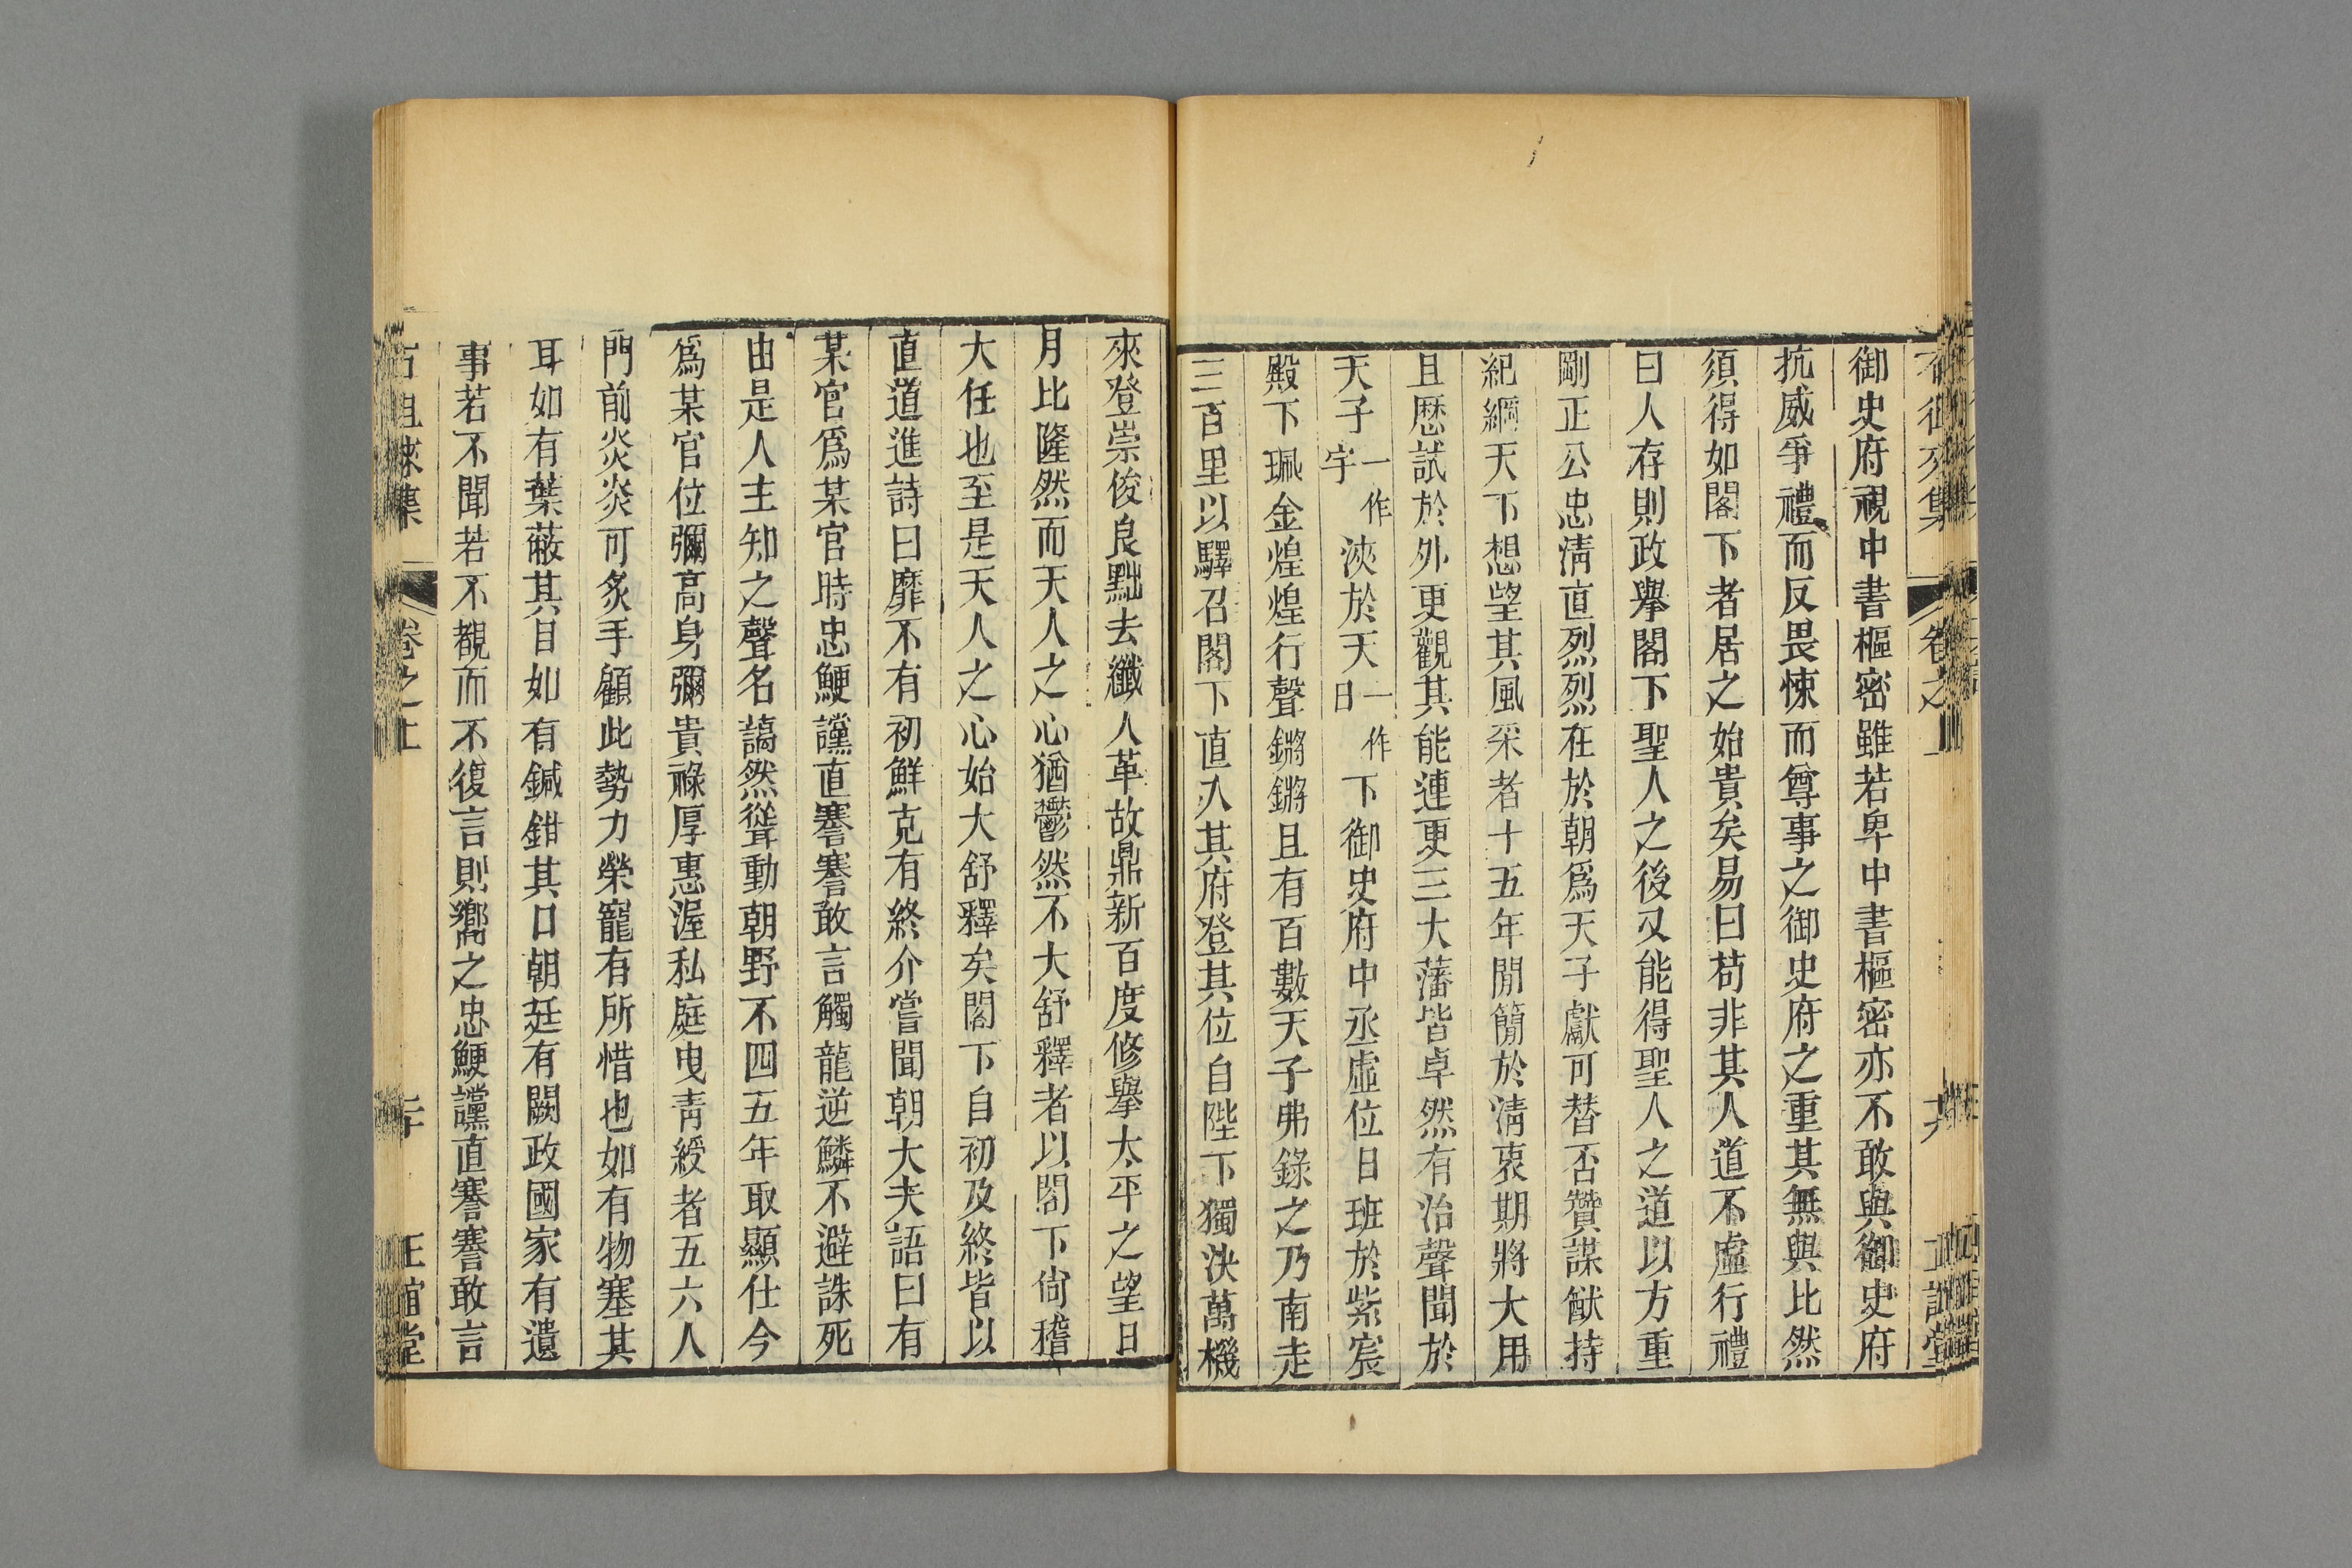 御史府視中書樞密雖若卑中書樞密亦不敢與御史府
抗威爭禮而反畏悚而尊事之御史府之重其無與比然
須得如閣下者居之始貴矣易曰苟非其人道不虛行禮
曰人存則政舉閣下聖人之後又能得聖人之道以方重
剛正公忠淸直烈烈在於朝爲天子獻可替否贊謀猷持
紀綱天下想望其風采者十五年閒簡於淸衷期將大用
且歷試於外更觀其能連更三大藩皆卓然有治聲聞於
天子一作宇浹於天一作日下御史府中丞虛位日班於紫宸
殿下珮金煌煌行聲鏘鏘且有百數天子弗錄之乃南走
三百里以驛召閣下直入其府登其位自陛下獨決萬機
來登崇俊良黜去纖人革故鼎新百度修舉太平之望日
月比隆然而天人之心猶鬱然不大舒釋者以閣下尙稽
大任也至是天人之心始大舒釋矣閣下自初及終皆以
直道進詩曰靡不有初鮮克有終介嘗聞朝大夫語曰有
某官爲某官時忠鯁讜直謇謇敢言觸龍逆鱗不避誅死
由是人主知之聲名謞然聳動朝野不四五年取顯仕今
爲某官位彌高身彌貴祿厚惠渥私庭曳靑綬者五六人
門前炎炎可炙手顧此勢力榮寵有所惜也如有物塞其
耳如有葉蔽其目如有鍼鉗其口朝廷有闕政國家有遺
事若不聞若不覩而不復言則嚮之忠鯁讜直謇謇敢言
徠集 卷之上 二十 正誼堂